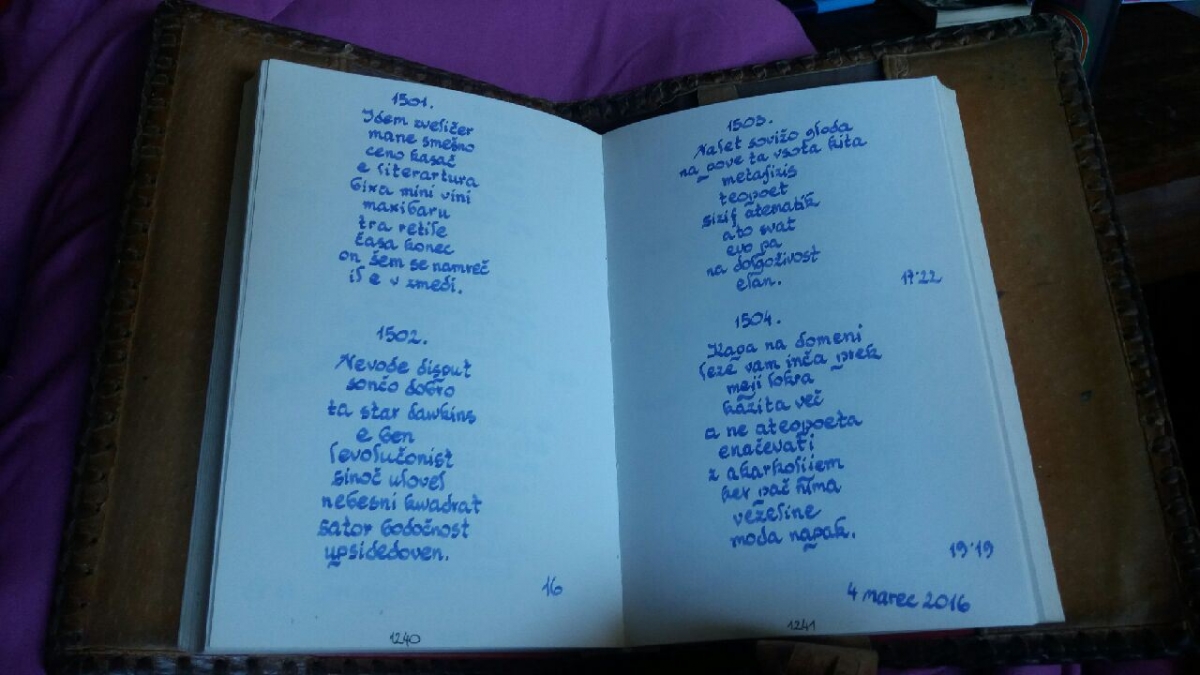 1501.
Idem zveličer
mane smešno
ceno kasač
e literartura
bixa mini vini
maxibaru
tra retile
časa konec
on šem se namreč
il e v zmedi.
1502.
Nevode disput
sončo dobro
ta star dawkins
e ben
levolučonist
sinoč ulovel
nebesni kwadrat
sator bodočnost
upsidedoven.
16
1240
1503.
Nalet sovižo gloda
na pove ta vsota kita
metafizis
teopoet
sizif atematik
ato svat
evo pa
na dolgoživost
elan.
17:22
1504.
Kapa na domeni
leze vam inča prek
meji lokra
kažita več
a ne ateopoeta
enačevati
z akarkolijem
ker pač nima
vezeline
moda napak.
19:19
4 marec 2016
1241